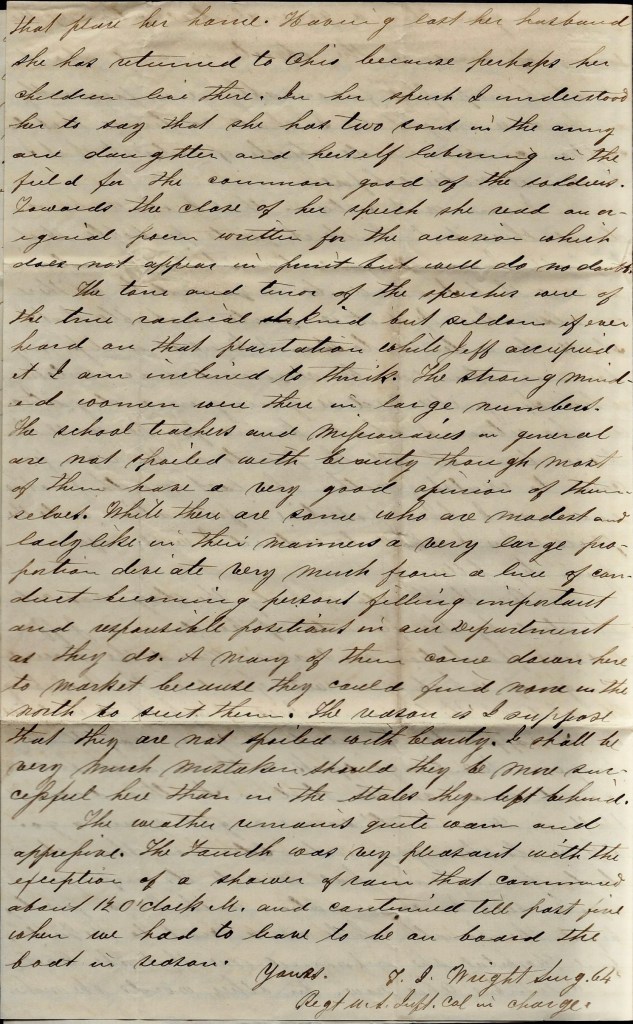 that place her home. Having lost her husband
she has returned to Ohio because perhaps her
children live there. In her speech I understood
her to say that she has two sons in the army
one daughter and herself laboring in the
field for the common good of the soldiers.
Towards the close of her speech she read an or-
iginal poem written for the occasion which
does not appear in print but will do no doubt.
The tone and tenor of the speeches were of
the true radical kind but seldom if ever
heard on that plantation while Jeff occupied
it I am inclined to think. The strong mind-
ed women were there in large numbers.
The school teachers and Missionaries in general
are not spoiled with beauty though most
of them have a very good opinion of them-
selves. While there are some who are modest and
ladylike in their manners a very large pro-
portion deviate very much from a line of con-
duct becoming persons filling important
and responsible positions in our Department
as they do. A many of them come down here
to market because they could find none in the
north to suit them. The reason is I suppose
that they are not spoiled with beauty. I shall be
very much mistaken should they be more suc-
cessful here than in the States they left behind.
The weather remains quite warm and
oppressive. The Fourth was very pleasant with the
exception of a shower of rain that commenced
about 12 O'clock M. and continued till past five
when we had to leave to be on board the
boat in season.
Yours. J. I. Wright Surg. 64
Regt U.S. Inft. Col in charge.